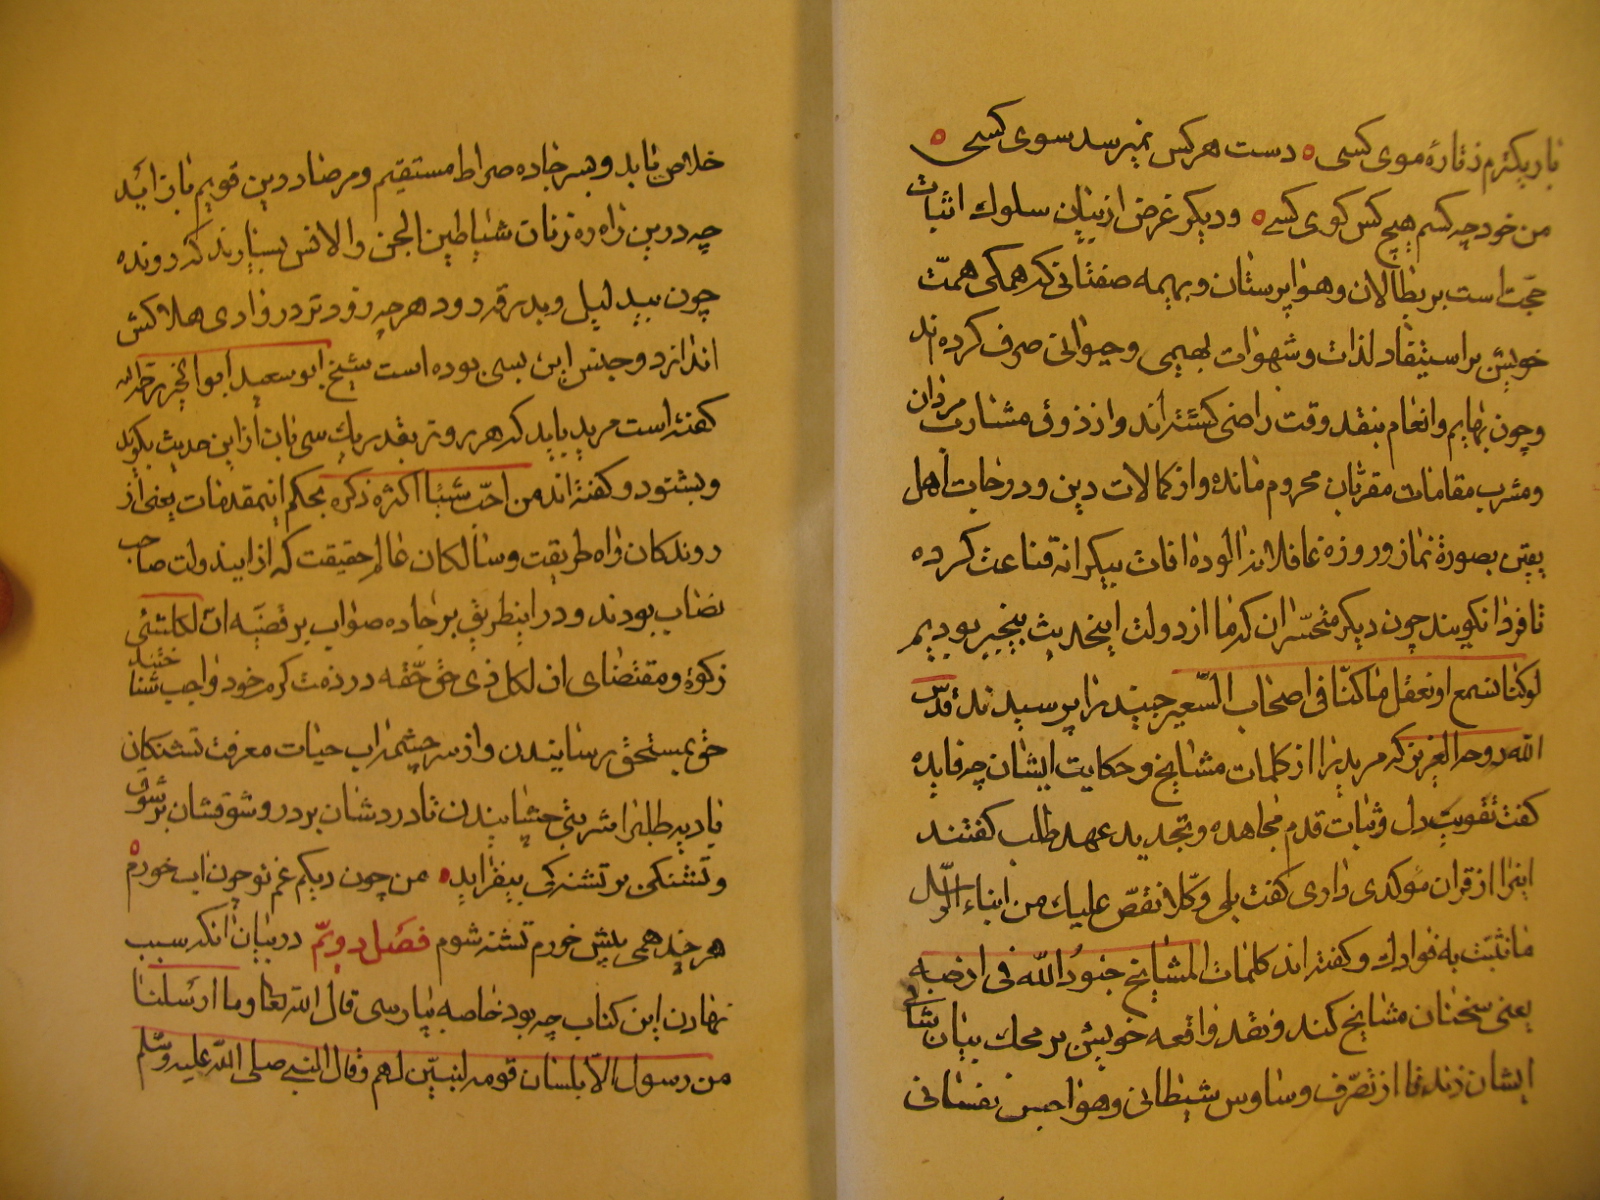 باریکترم ز تارهٔ موی کسی دست هر کس نمیرسد سوی کسی
من خود چه کسم هیچ کس کوی کسی ودیکر غرض از بیان سلوك اثبات
حجت است بر بطالان وهوا پرستان وبهیمه صفتانی که همکی همّت
خویش بر استیفاد لذات وشهوات بهیمی وحیوانی صرف کرده اند
وچون بهایم وانعام بنقد وقت راضی کشته اند واز ذوق مشارب مردان
ومشرب مقامات مقربان محروم مانده واز کمالات دین ودرجات اهل
یقین بصورة نماز وروزه غافلانه الوده افات بیکرانه قناعت کرده
تا فردا نکویند چون دیکر متحسّران که ما از دولت اینحدیث بیخبر بودیم
لو کنّا نسمع او نعقل ما کنّا فی اصحاب السّعیر جنید را پرسیدند قدّس
الله روحه العزیز که مرید را از کلمات مشایخ وحکایت ایشان چه فایده
کفت تقویت دل وثبات قدم مجاهده وتجدید عهد طلب کفتند
اینرا از قران مؤکدی داری کفت بلی وکلا نقصّ علیك من انباء الرّسل
ما نثبّت به فوادك وکفته اند کلمات المشایخ جنودُ الله فی ارضه
یعنی سخنان مشایخ کند ونقد واقعه خویش بر محك بیان شافی
ایشان زند تا از تصرّف وساوس شیطانی وهواجس نفسانی
خلاص یابد وبسر جاده صراط مستقیم ومرضاد دین قویم باز اید
چه درین راه ره زنان شیاطین الجن والانس بسیارند که رونده
چون بیدلیل وبدرقه رود هر چه زودتر در وادی هلاکش
اندازد وجنس این بسی بوده است شیخ ابو سعید ابو الخیر رحمه الله
کفته است مرید باید که هر روز بقدر یك سی بان از این حدیث بکوید
وبشنود وکفته اند من احبّ شیئا اکثر ذکره بحکم اینمقدمات یعنی از
روندکان راه طریقت وسالکان عالم حقیقت که از ایندولت صاحب
نصاب بودند ودر اینطریق بر جاده صواب بر قضیّه انّ لکل شئی
زکوة ومقتضای ان لکل ذی حق حّقه در ذمت کرم خود واجب شناختند
حق بمستحق رسانیدن واز سر چشمه اب حیات معرفت تشنکان
بادیه طلبرا شربتی چشانیدن تا درد شان بر درد وشوقشان بر شوق
وتشنکی بر تشنه کی بیفزاید من چون ریکم غم تو چون اب خورم
هر چند همی بیش خورم تشنه شوم فصَل دویّم در بیان انکه سبب
نهادن این کتاب چه بود خاصه بپارسی قال الله تعا وما ارسلنا
من رسول الّا بلسان قومه لیبیّن لهم وقال النبی صلی الله علیه وسّلم